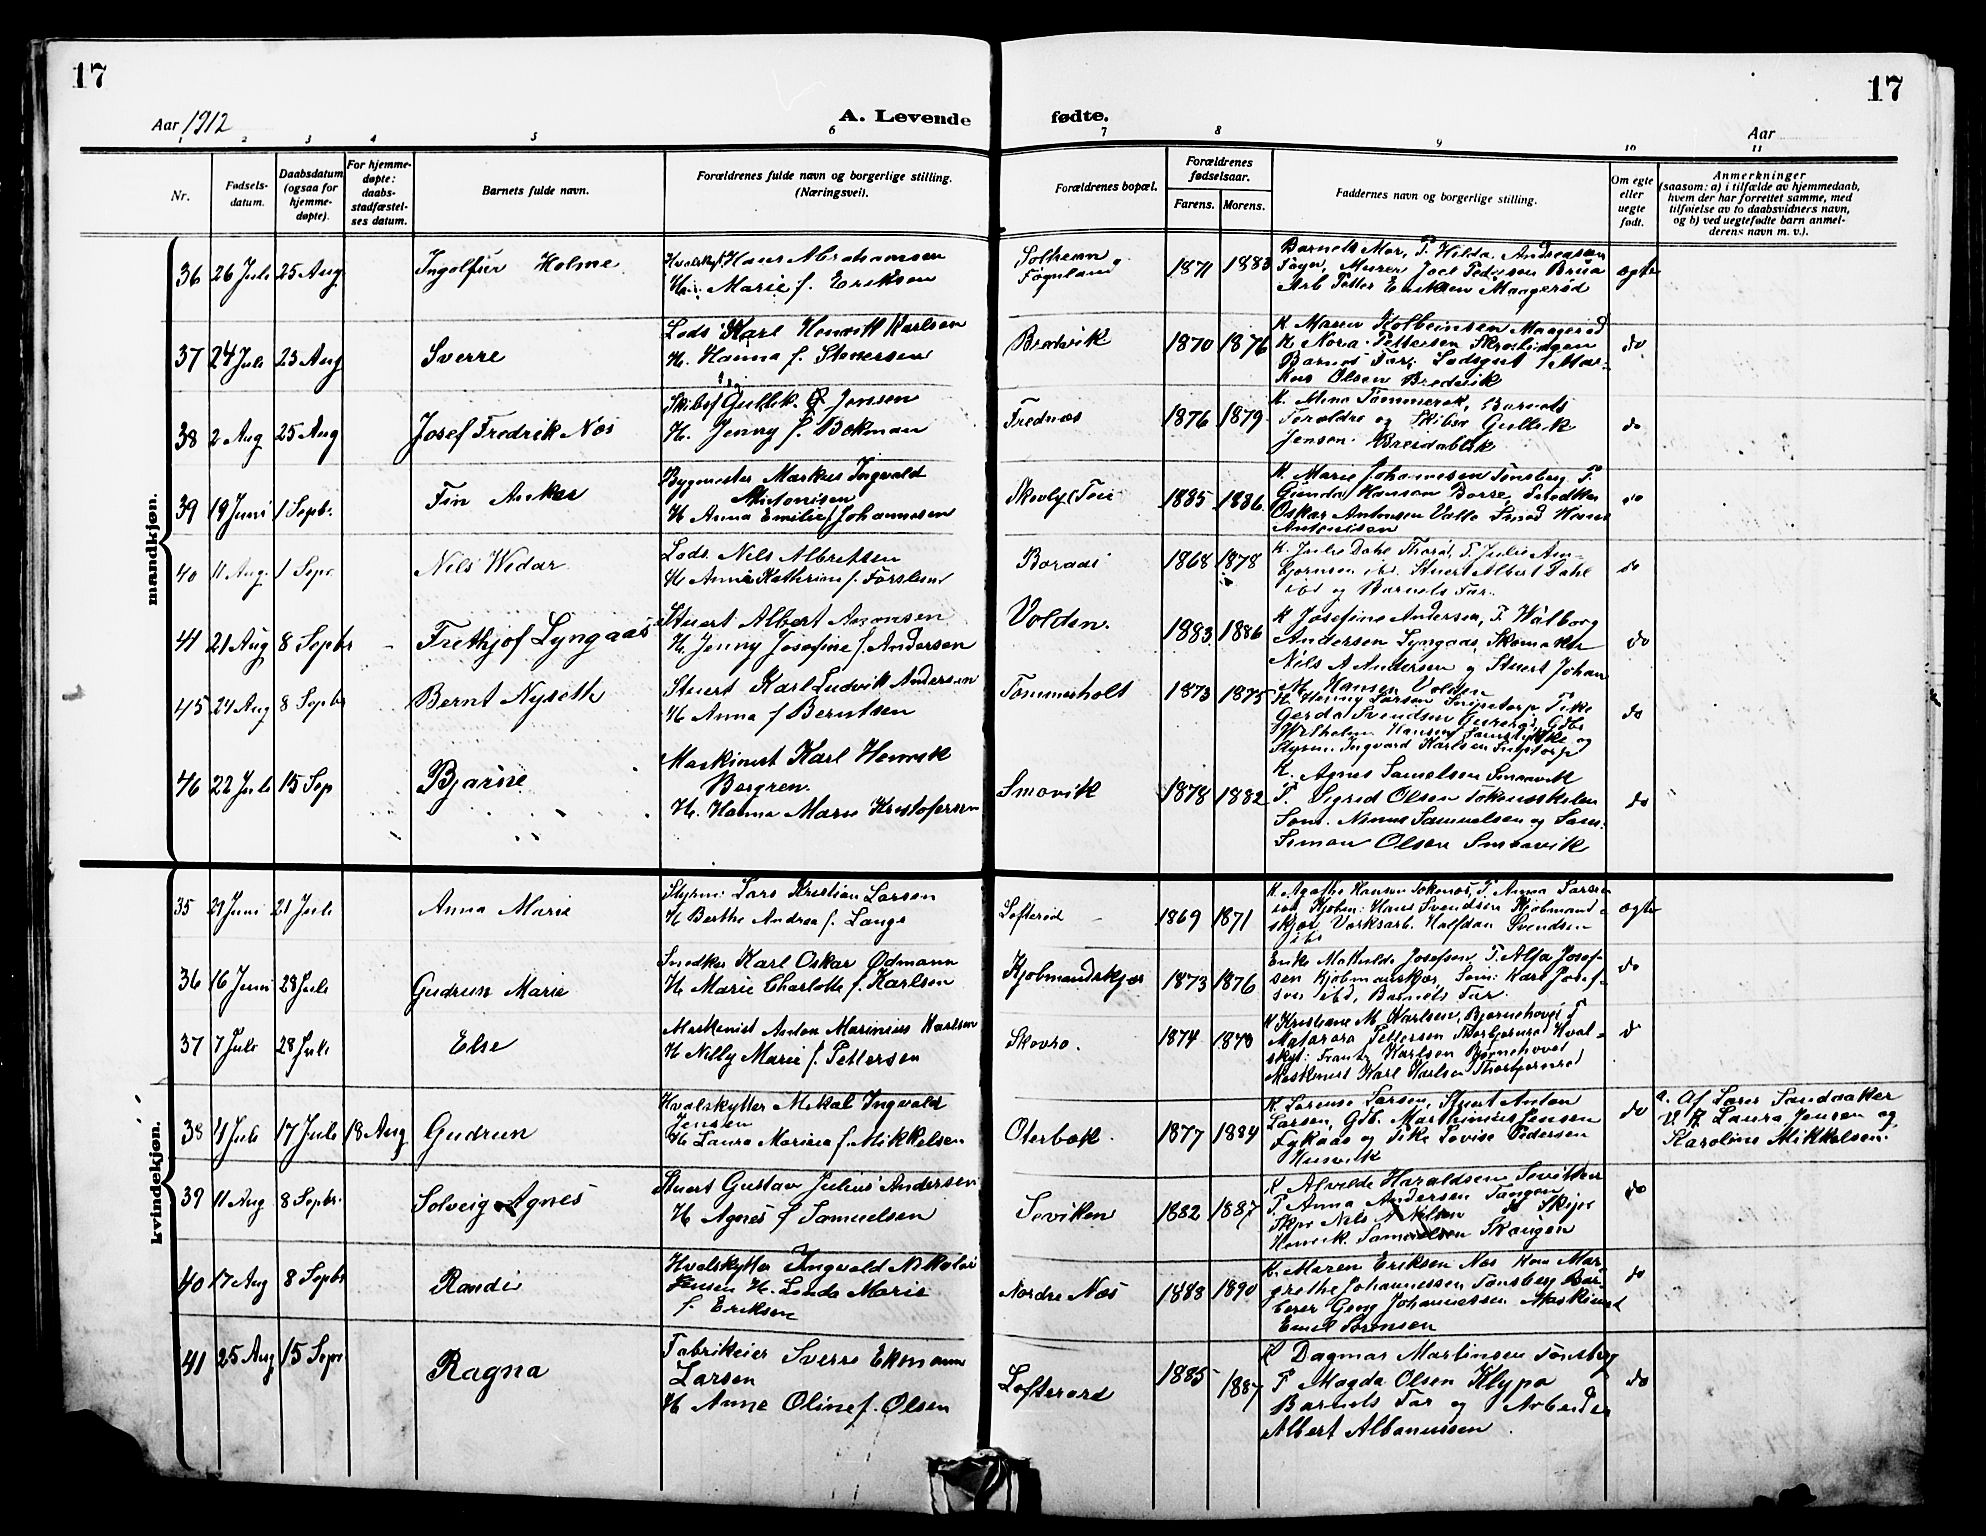 17
17
Aar 1912
A. Levende
fødte.
Aar
1 2 3 4 5 6 7 8 9 10 11
Nr.
Fødsels-
datum.
Daabsdatum
(ogsaa for
hjemme-
døpte).
For hjemme-
døpte:
daabs-
stadfæstel-
ses datum.
Barnets fulde navn.
Forældrenes fulde navn og borgerlige stilling.
(Næringsvei).
Forældrenes bopæl.
Forældrenes
fødselsaar.
Farens. Morens.
Faddernes navn og borgerlige stilling.
Om egte
eller
uegte
født.
Anmerkninger
(saasom: a) i tilfælde av hjemmedaab,
hvem der har forrettet samme, med
tilføielse av to daabsvidners navn,
og b) ved uegtefødte barn anmel-
derens navn m. v.).
mandkjøn.
36 26 Juli 25 Aug
Ingolfur Holme
Hvalskyt Hans Abrahamsen
H. Marie f. Eriksen
Solheim
Føgnland
1871 1883
Barnets Mor, P. Hilda Andreasen
Føyn, Murer Joel Pedersen Brua
Arb Petter Eriksen Maagerød
egte
37 24 Juli 25 Aug
Sverre
Lods Karl Henrik Karlsen
H. Hanna f. Stenersen
Bredvik
1870 1876
K Maren Kolbeinsen Maagerød
K Nora Pettersen
Barnets Far, Lodsgut
Olsen Bredvik
do
38 2 Aug 25 Aug
Josef Fredrik Nes
Gullik Jensen
H. Jenny f. Bekman
Frednæs
1876 1879
K. Mina Tømmerek, Barnets
Forældre og Skibsr Gullik
Jensen Breidablik
do
39 19 Juni 1 Sepbr.
Fin Anker
Bygmester Markus Ingvald
Antonisen
H Anna Emilie f Johannesen
Skovly Teie
1885 1886
K. Marie Johannesen Tønsberg P.
Gunda Hansen Borre, Snedker
Oskar Antonsen Valle Smed Hans
Antonisen
do
40 11 Aug. 1 Sepr
Nils Widar
Lods. Nils Albretsen
H Anna Kathrine f.
Boraas
1868 1878
K. Julie Dahl P. Julie Am-
Stuert Albert Dahl
ibd og Barnets Far.
do
41 21 Aug 8 Sepbr
Frethjof Lyngaas
Stuert Albert Aronsen
H. Jenny Josefine f. Andersen
Volden.
1883 1886
K Josefine Andersen, P. Walborg
Andersen Lyngaas, Skomaker
Nils A Andersen og Stuert Johan
M. Hansen Volden
do
45 24 Aug 8 Sepbr
Bernt Nyseth
Stuert Karl Ludvik Andersen
H Anna f Berntsen
Tømmerholt
1873 1875
K Larsen Pike
Gerda Svendsen
Vilhelm Hansen og
Styrm. Ingvard Karlsen
do
46 22 Juli 15 Sep
Bjarne
Maskinist Karl Henrik
Bergren.
H. Hanna Marie Kristofersen
Smovik
1878 1882
K. Agnes Samelsen Smaavik
P. Sigrid Olsen Tokenskilen
Søm. Ninus Samuelsen og Søm:
Simon Olsen Smaavik
do
kvindekjøn.
35 29 Juni 21 Juli
Anna Marie
Styrm: Lars Kristian Larsen
H Berthe Andrea f. Lange
Lofterød
1869 1871
K. Agathe Hansen Tokenæs, P. Anna Larsen
ibd Kjøbm: Hans Svendsen Kjøbmand-
skjær Verksarb. Halfdan Svendsen
ibd
egte
36 16 Juni 28 Juli
Gudrun Marie
Snedker Karl Oskar Ødmann
H. Marie Charlotte f. Karlsen
Kjøbmandskjær
1873 1876
Enke Mathilde Josefsen, P. Alfa Josef-
sen Kjøbmanskjær, Søm: Karl Josef-
sen ibd, Barnets Far.
do
37 7 Juli 28 Juli
Else
Maskinist Anton Marinius Karlsen
H Nilly Marie f. Pettersen
Skovro.
1874
K Kristiane M. Karlsen, Bjørnehovet P
Pettersen Thorbjørnrød, Hval-
skyt: Frantz Karlsen Bjørnehovet
Maskinist Karl Karlsen Thorbjørnrød
do
38 11 Juli 17 Juli 18 Aug
Gudrun
Hvalskytter Mikal Ingvald
Jensen
H Laura Marina f Mikkelsen
Oterbæk.
1877 1884
K Lorense Larsen, Stuert Anton
Larsen, Gdb. Jensen
Fykaas og Pike Lovise Pedersen
Husvik
do
a. Af Lærer Sandaaker
V. F. Laura Jensen og
Karoline Mikkelsen.
39 11 Aug 8 Sepbr.
Solveig Agnes
Stuert Gustav Julius Andersen
H. Agnes f Samuelsen
Soviken
1882 1887
K Alvilde Haraldsen Soviken
P. Anna Andersen Tangen
Skpr Nils A Nilsen Skipr
Henrik Samuelsen Skaugen
do
40 17 Aug 8 Sepbr
Randi
Hvalskytter Ingvald Nikolai
Jensen H. Linda Marie
f. Eriksen
Nordre Næs
1888 1890
K. Maren Eriksen Nes Kone Mar-
grethe Johannessen Tønsberg Bar-
berer Georg Johannessen Maskinist
Emil Sørensen
do
41 25 Aug 15 Sepr
Ragna
Fabrikeier Sverre Ekmann
Larsen
H Anne Oline f. Olsen
Lofterød
1885 1887
K Dagmar Martinsen Tønsberg
P Magda Olsen Klypa
Barnets Far og Arbeider
Albert Albanussen
do